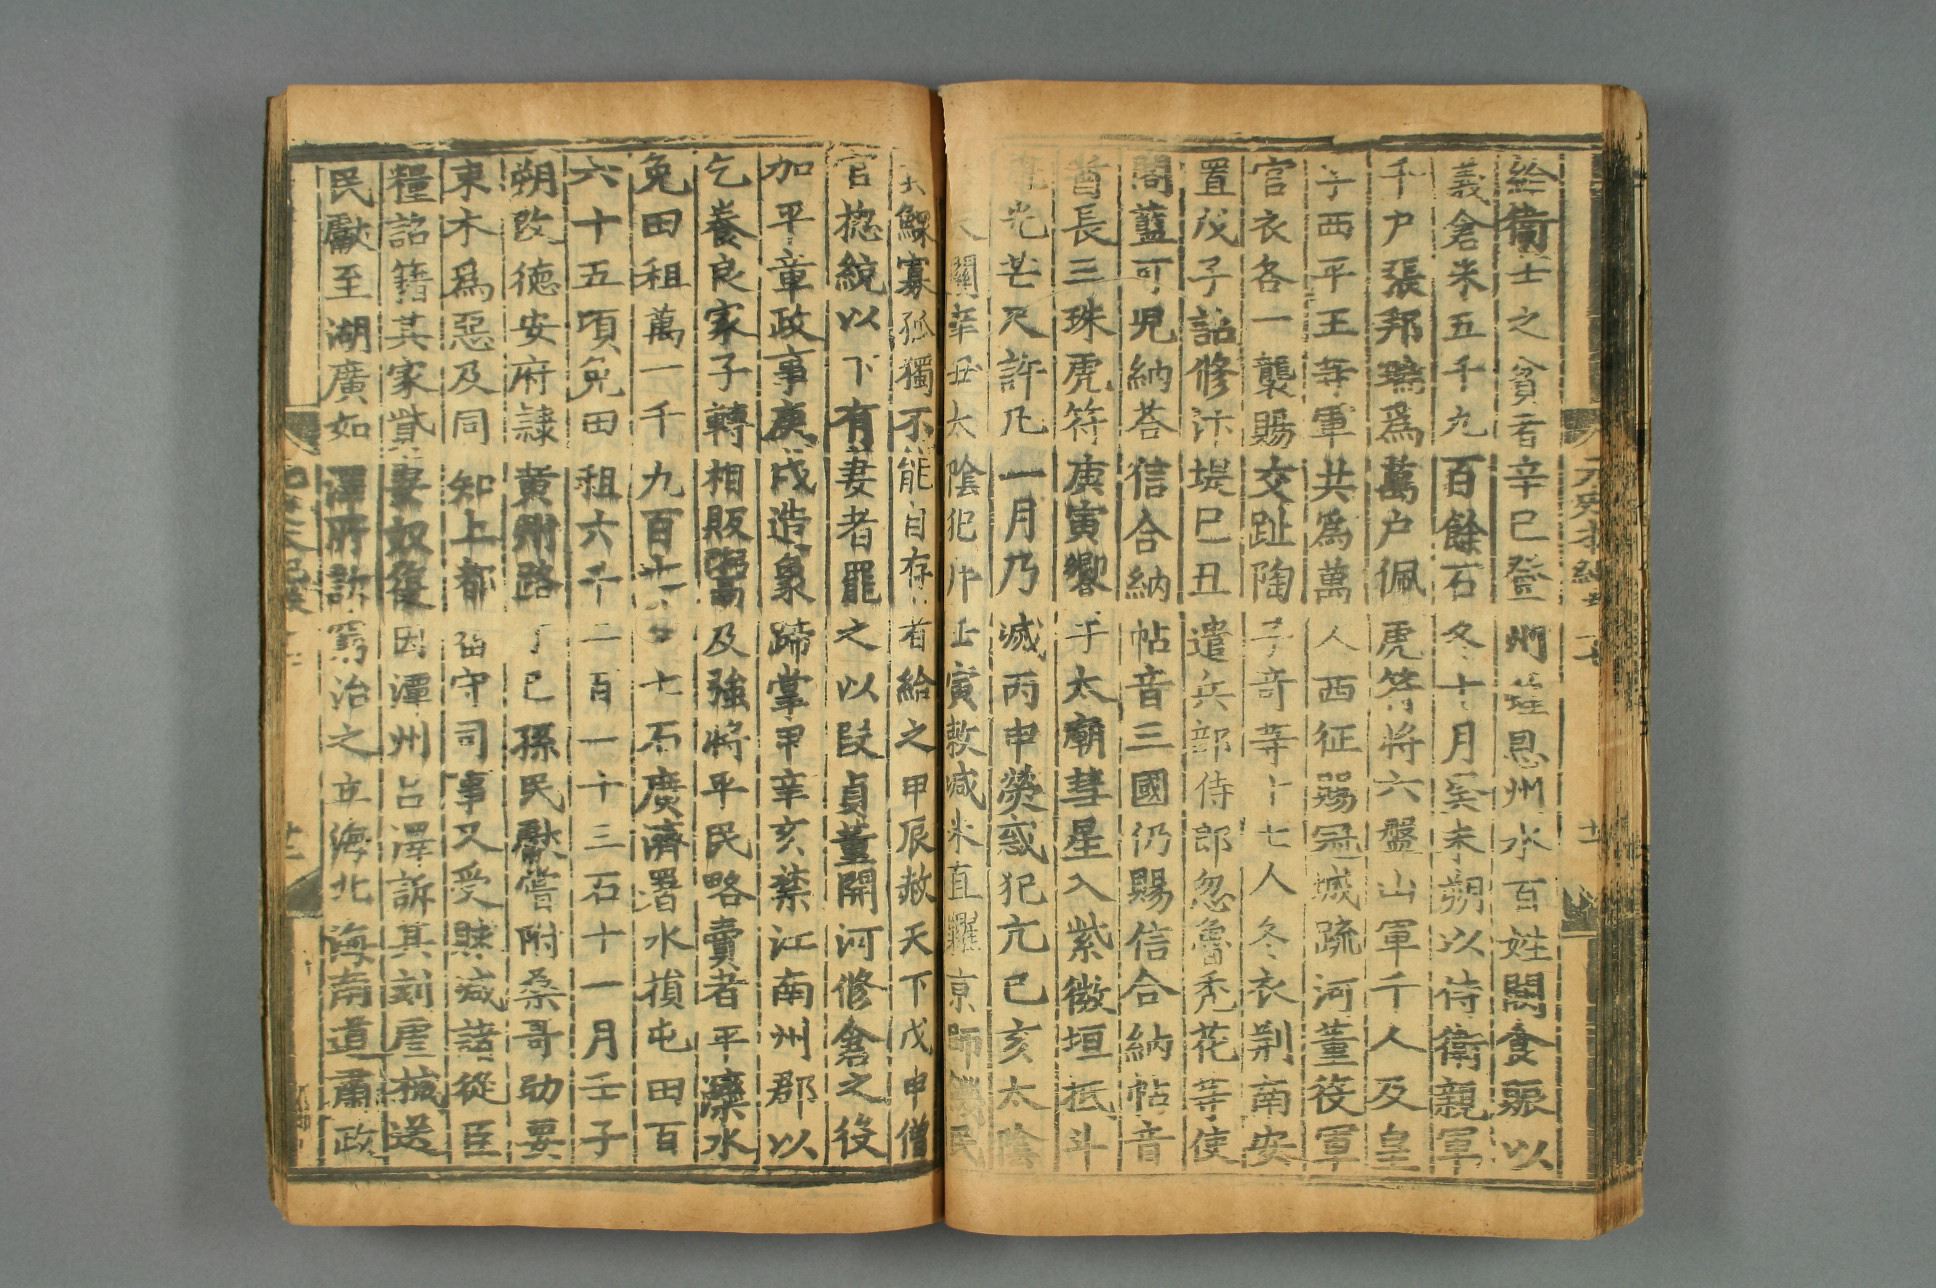 給衛士之貧者辛巳登州蓬恩州水百姓闕食賑以
義倉米五千九百餘石冬十月癸未朔以侍衛親軍
千戶張邦瑞爲萬戶佩虎符將六盤山軍千人及皇
子西平王等軍共爲萬人西征賜冠城疏河董役軍
官衣各一襲賜交趾陶子奇等十七人冬衣荆南安
置戊子詔修汴堤巳丑遣兵部侍郎忽魯禿花等使
閣藍可兒納荅信合納帖音三國仍賜信合納帖音
酋長三珠虎符庚寅饗于太廟彗星入紫微垣抵斗
光芒尺許凡一月乃滅丙申熒惑犯亢己亥太陰
犯天關辛丑太陰犯井壬寅敕減米直糶京師饑民
其鰥寡孤獨不能自存者給之甲辰赦天下戊申僧
官揔統以下有妻者罷之以段貞董開河修倉之役
加平章政事庚戌造象蹄掌甲辛亥禁江南州郡以
乞養良家子轉相販鬻及強將平民略賣者平灤水
免田租萬一千九百七十七石廣濟署水損屯田百
六十五頃免田租六千二百一十三石十一月壬子
朔改德安府隷黃州路丁巳孫民獻嘗附桑哥助要
束木爲惡及同知上都留守司事又受賕減諸從臣
糧詔籍其家貲妻奴復因潭州呂澤訴其刻虐械送
民獻至湖廣如澤所訴窮治之立海北海南道肅政